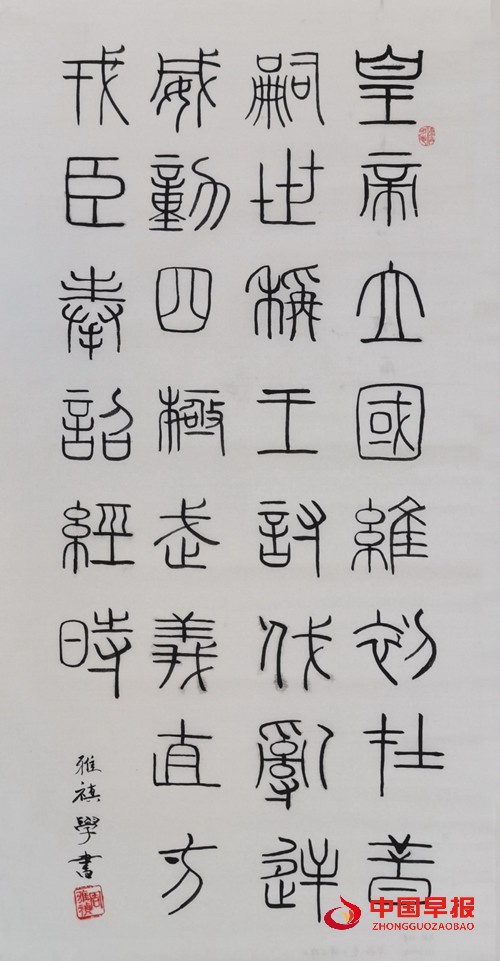 皇帝立國維初在昔
嗣世稱王討伐亂逆
威動四極武義直方
戎臣奉詔經時
雅禛學書
中国早报
ZHONGGUOZAOBAO